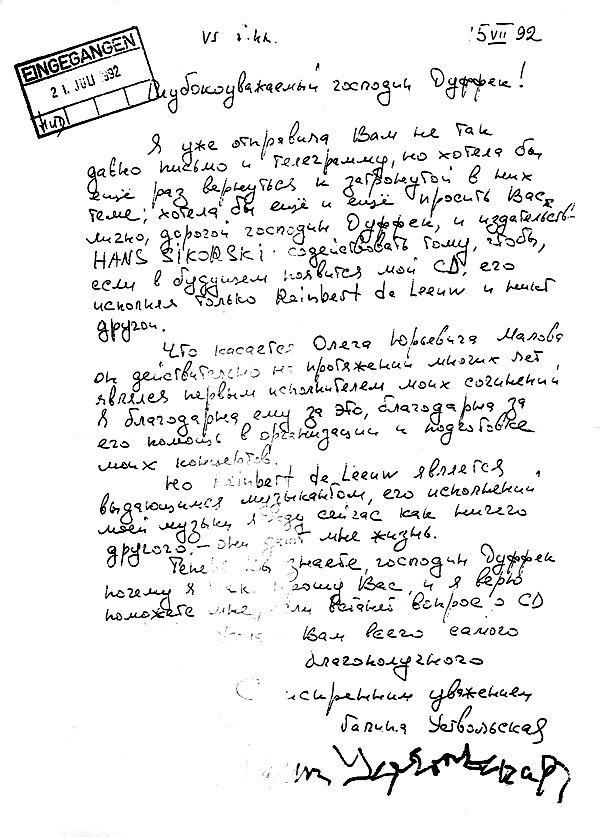 VS
15 VII 92
EINGEGANGEN
21. JULI 1992
Глубокоуважаемый господин Дуффек!
Я уже отправила Вам не так
давно письмо и телеграмму, но хотела бы
ещё раз вернуться к затронутой в них
теме; хотела бы ещё и ещё просить Вас
лично, дорогой господин Дуффек, и издательств-
HANS SIKORSKI содействовать тому, чтобы,
если в будущем появится мой CD, его
исполнял только Reinbert de Leeuw и никт
другой.
Что касается Олега Юрьевича Малова
он действительно на протяжении многих лет
являлся первым исполнителем моих сочинений
Я благодарна ему за это, благодарна за
его помощь в организации и подготовке
моих концертов.
Но Reinbert de Leeuw является
выдающимся музыкантом, его исполнений
моей музыки я жду сейчас как ничего
другого, – они дают мне жизнь.
Теперь Вы знаете, господин Дуффек
почему я так прошу Вас, и я верю
поможете мне, если встанет вопрос о CD
Вам всего самого
благополучного
С искренним уважением
Галина Уствольская
Уствольская